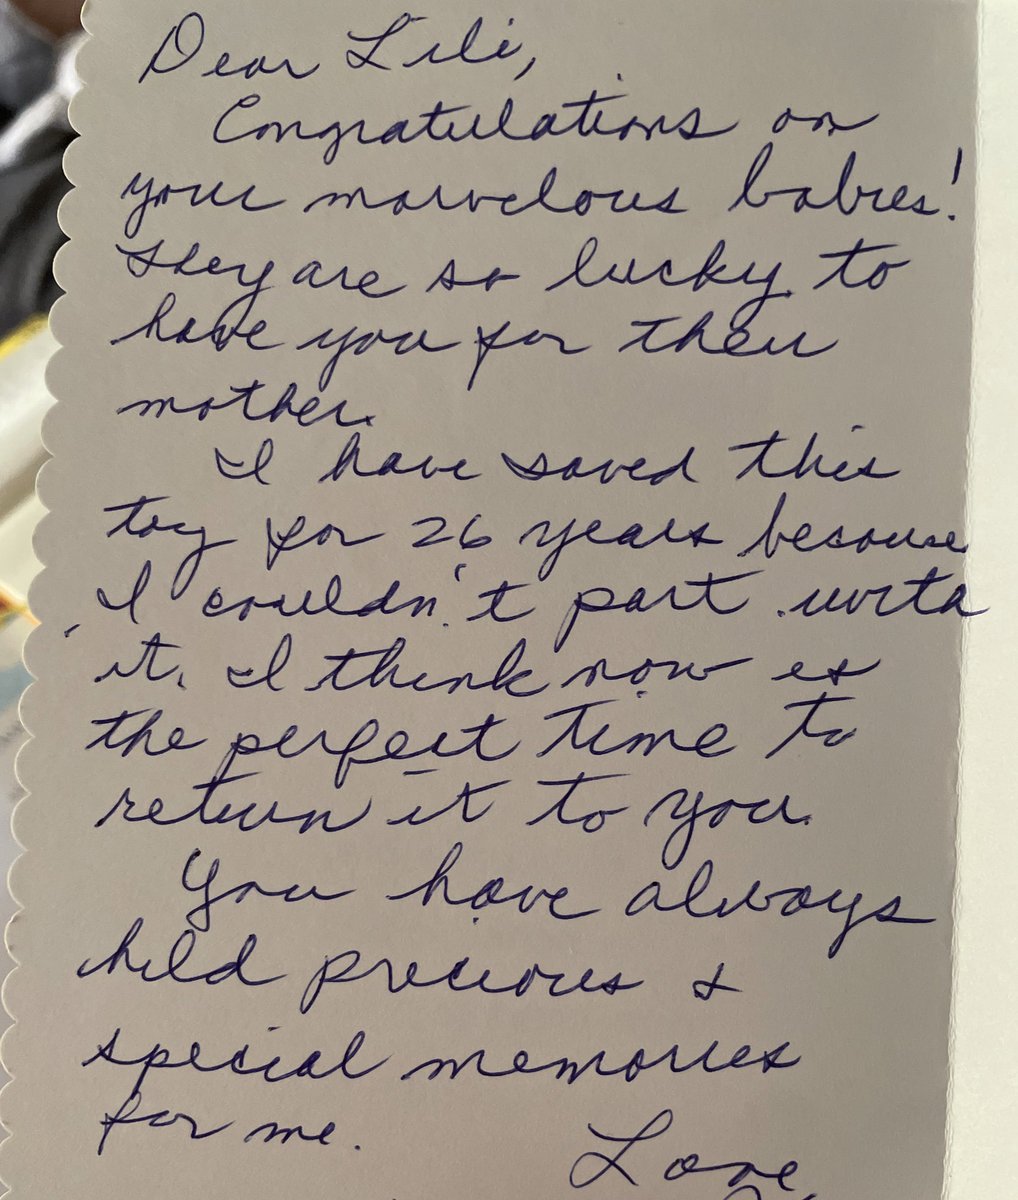 Dear Lili,
Congratulations on
your marvelous babies!
They are so lucky to
have you for their
mother.
I have saved this
toy for 26 years because
I couldn't part with
it. I think now is
the perfect time to
return it to you.
You have always
held precious &
special memories
for me.
Love